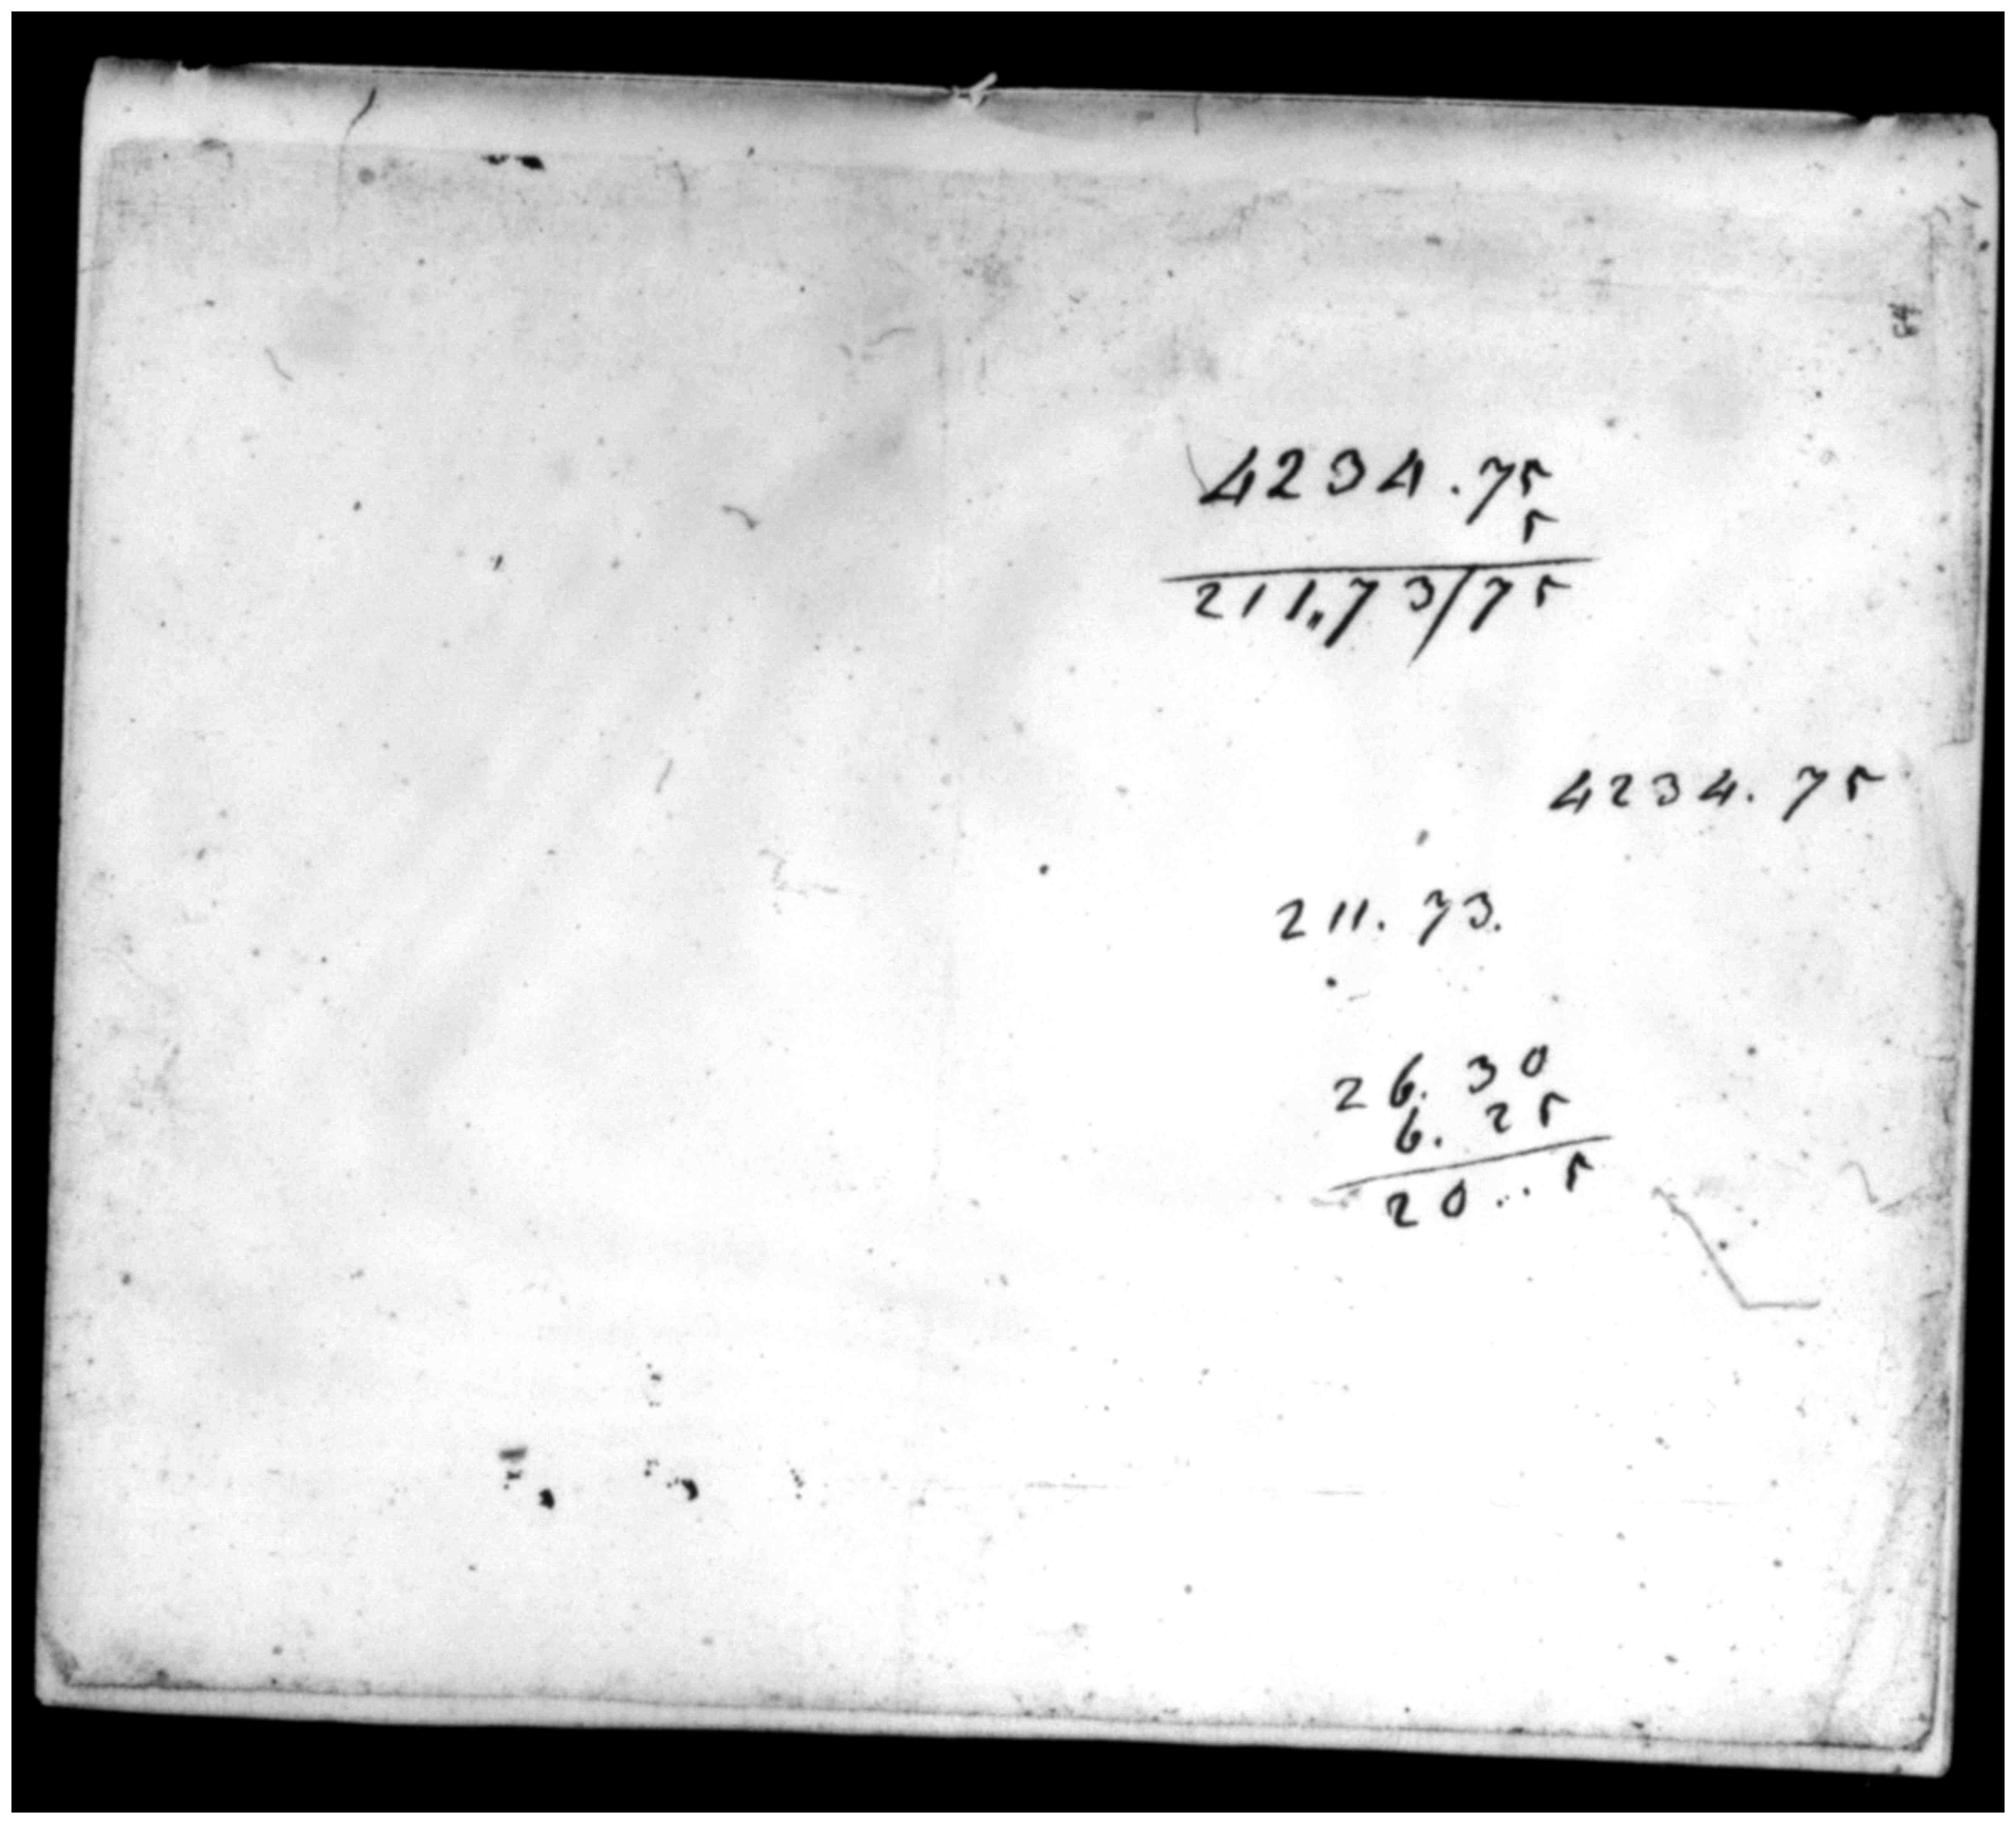 84
4234.75
5
211,,73/75
4234.75
211.73.
26.30
6.25
20...5